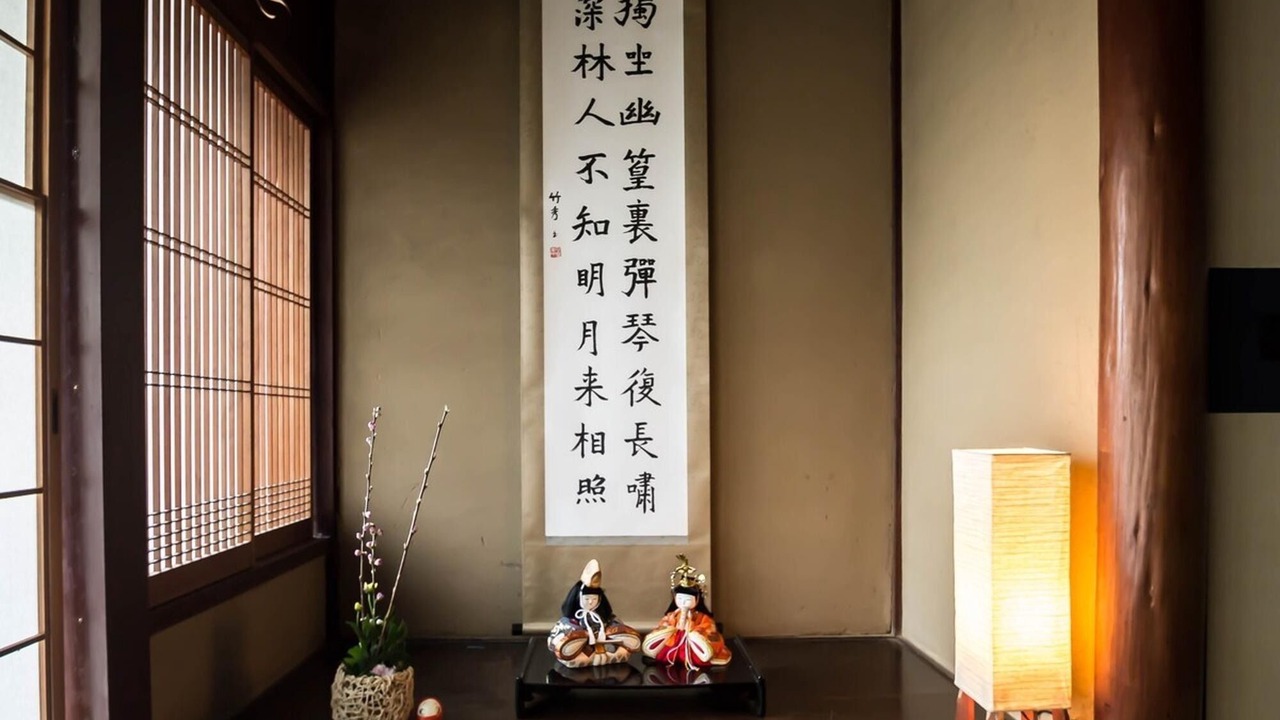 獨坐幽篁裏彈琴復長嘯
深林人不知明月来相照
竹秀